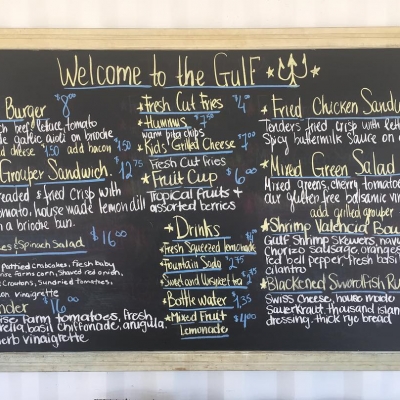 Welcome to the Gulf
Burger $8.00
beef, lettuce, tomato
garlic aioli on brioche
cheese 1.50 add bacon 1.50
Grouper Sandwich. $12.75
breaded & fried crisp with
tomato, house made lemon dill
on a brioche bun.
& Spinach Salad $16.00
Potted crabcakes, fresh baby
farms corn, shaved red onion,
croutons, sundried tomatoes,
vinaigrette
16.00
farm tomatoes, fresh
basil chiffonade, arugula,
herb vinaigrette
Fresh Cut Fries $4.00
Hummus $7.50
warm pita chips
Kids' Grilled Cheese $7.00
Fresh Cut Fries
Fruit Cup $6.00
Tropical fruits &
assorted berries
Drinks
Fresh Squeezed Lemonade
Fountain Soda $2.75
Sweet and Unsweet tea
Bottle water
Mixed Fruit $4.00
Lemonade
Fried Chicken
Tenders fried crisp with
Spicy buttermilk sauce on
Mixed Green Salad
Mixed greens, cherry
our gluten free balsamic
add grilled grouper
Shrimp Valencia
Gulf Shrimp Skewers,
chorizo sausage, orange
red bell pepper, fresh
cilantro
Blackened Swordfish
Swiss cheese, house made
Sauerkraut, thousand island
dressing, thick rye bread